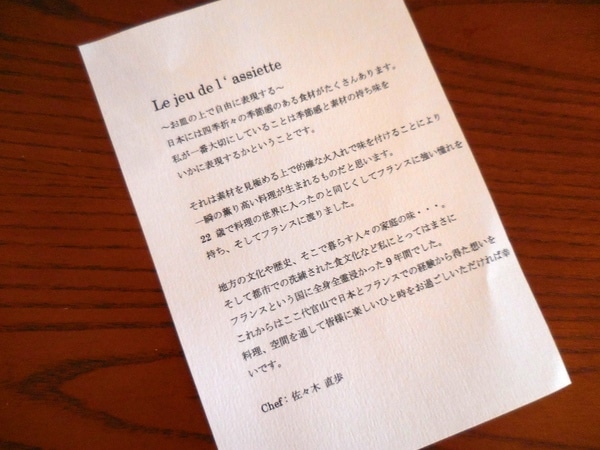 Le jeu de l‘ assiette
～お皿の上で自由に表現する～
日本には四季折々の季節感のある食材がたくさんあります。
私が一番大切にしていることは季節感と素材の持ち味を
いかに表現するかということです。
それは素材を見極める上で的確な火入れで味を付けることにより
一瞬の薫り高い料理が生まれるものだと思います。
22 歳で料理の世界に入ったのと同じくしてフランスに強い憧れを
持ち、そしてフランスに渡りました。
地方の文化や歴史、そこで暮らす人々の家庭の味・・・。
そして都市での洗練された食文化など私にとってはまさに
フランスという国に全身全霊浸かった 9 年間でした。
これからはここ代官山で日本とフランスでの経験から得た想いを
料理、空間を通して皆様に楽しいひと時をお過ごしいただければ幸
いです。
Chef: 佐々木 直歩